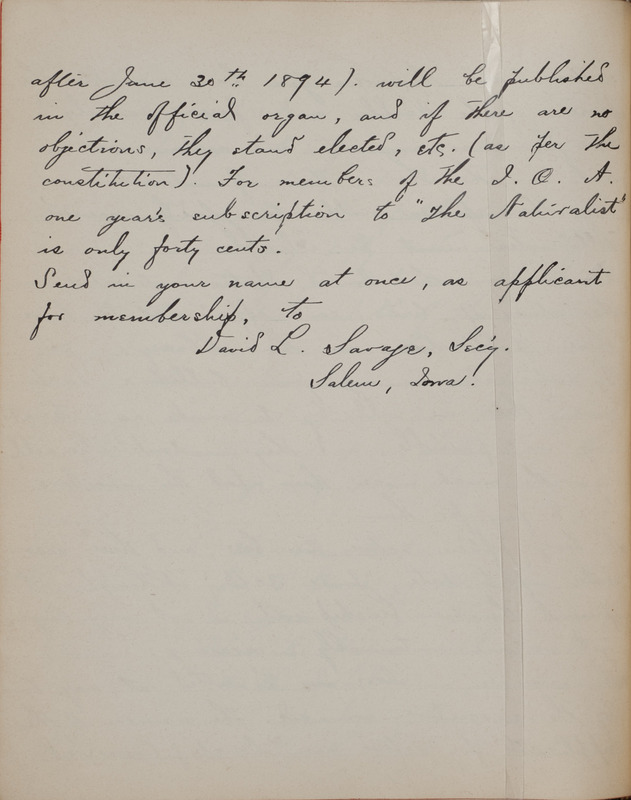 after June 30th 1894). will be published
in the official organ, and if there are no
objections, they stand elected, etc. (as per the
constitution). For members of the I. O. A.
one year's subscription to "The Naturalist"
is only forty cents.
Send in your name at once, as applicant
for membership, to
David L. Savage, Sec'y.
Salem, Iowa.